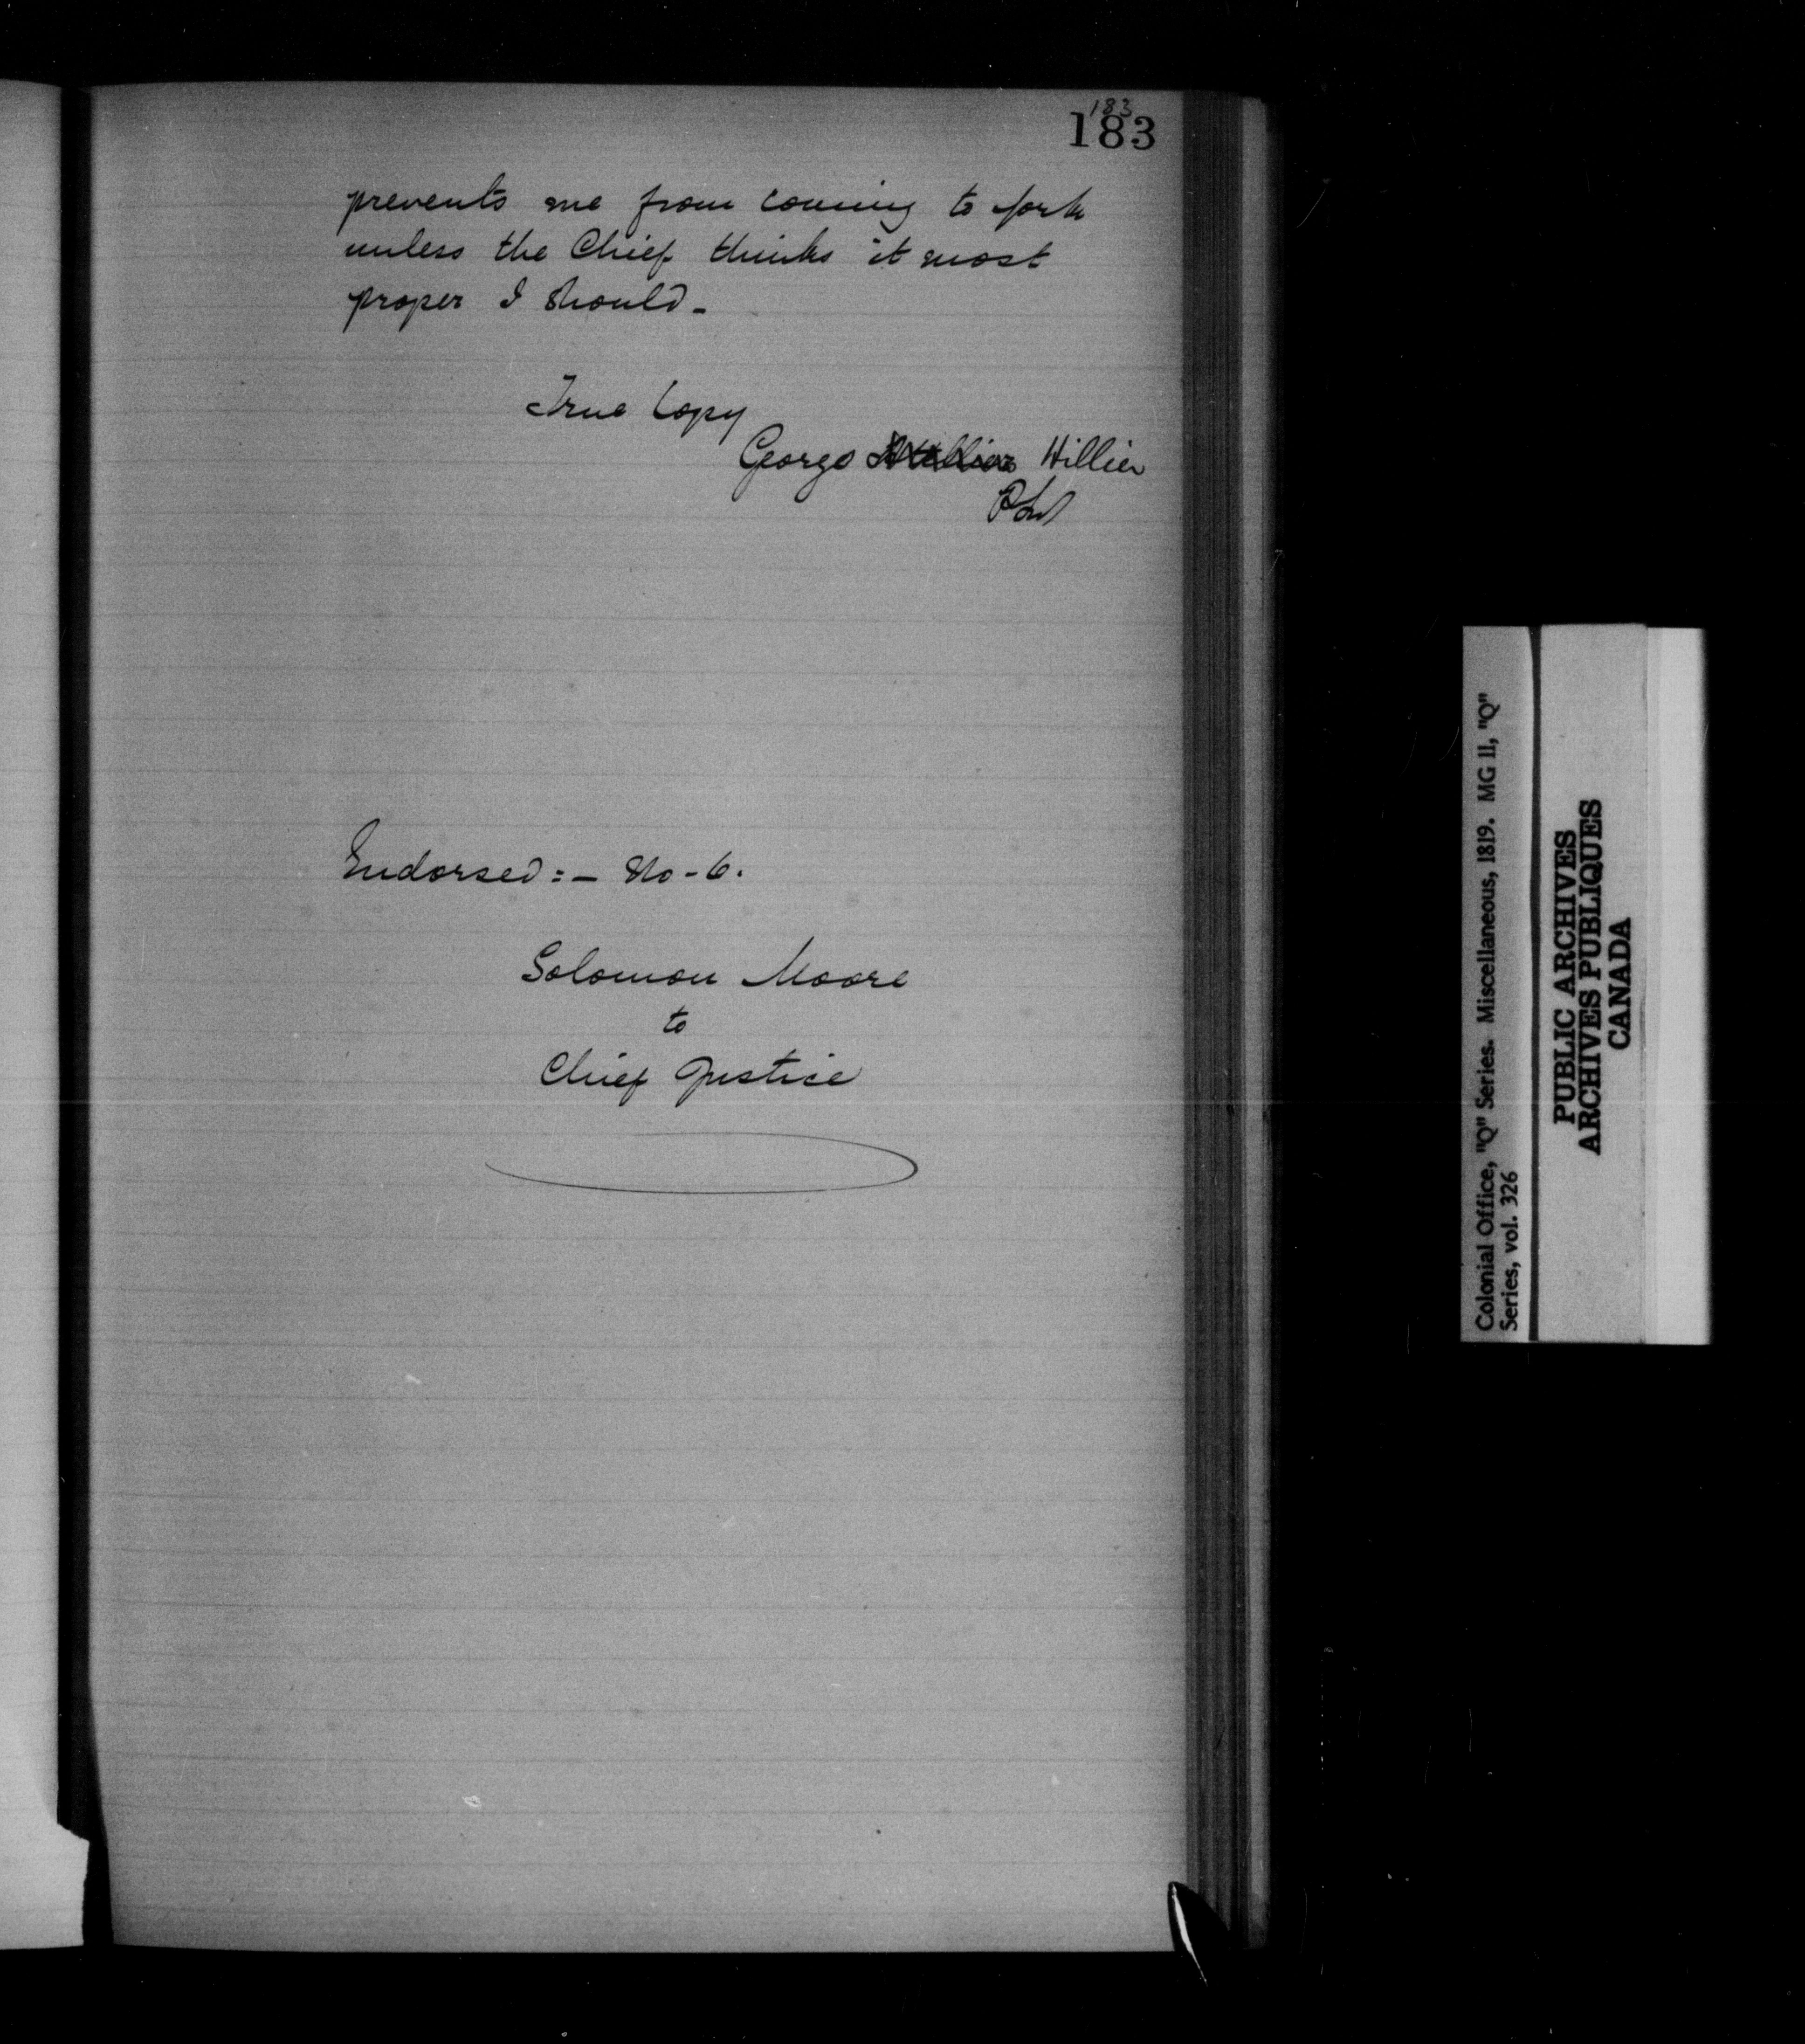 183
183
prevents me from coming to York
unless the Chief thinks it most
proper I should -
True Copy
George Hillier
Endorsed :- No - 6.
Solomon Moore
to
Chief Justice
Colonial Office, "Q" Series. Miscellaneous, 1819. MG 11, "Q"
Series, vol. 326
PUBLIC ARCHIVES
ARCHIVES PUBLIQUES
CANADA